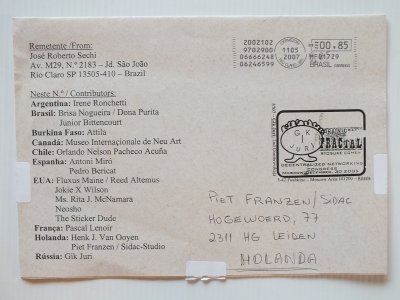 Remetente /From:
José Roberto Sechi
Av. M29, N.º 2183 – Jd. São João
Rio Claro SP 13505-410 – Brazil
Neste N.º / Contributors:
Argentina: Irene Ronchetti
Brasil: Brisa Nogueira / Dona Purita
Junior Bittencourt
Burkina Faso: Attila
Canadá: Museo Internacionale de Neu Art
Chile: Orlando Nelson Pacheco Acuña
Espanha: Antoni Miró
Pedro Bericat
EUA: Fluxus Maine / Reed Altemus
Jokie X Wilson
Ms. Rita J. McNamara
Neosho
The Sticker Dude
França: Pascal Lenoir
Holanda: Henk J. Van Ooyen
Piet Franzen / Sidac-Studio
Rússia: Gik Juri
2002102
9702900
06666248
06246599
1105
2007
00,85
BRASIL
GIK
JURI
FRACTAL
DECENTRALIZED NETWORKING
CONGRESS
PIET FRANZEN/SIDAC
HOGEWOERD, 77
2311 HG LEIDEN
HOLANDA